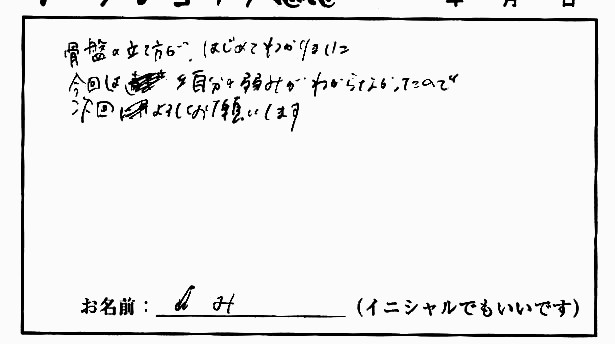 年 月 日
骨盤の立て方が、はじめてわかりました
今回は 自分の弱みがわからなかったので
次回 よろしくお願いします
お名前： み (イニシャルでもいいです)